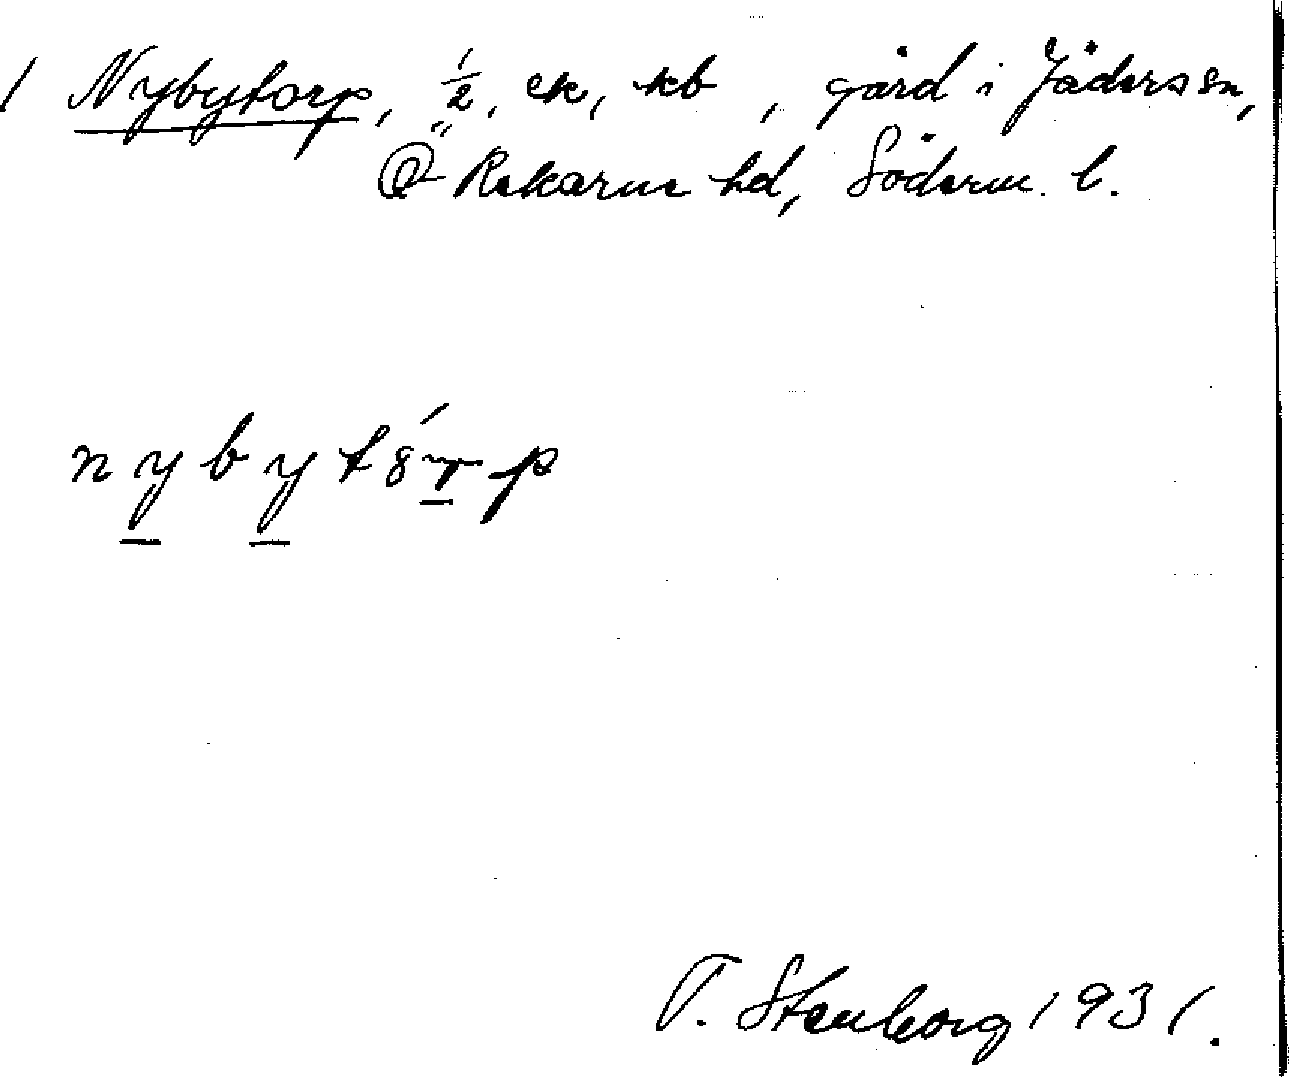 1 Nybytorp, 1/2, ek, kb, gård i Jäders sn,
Ö Rekarne hd, Söderm. l.
T. Stenborg 1931.